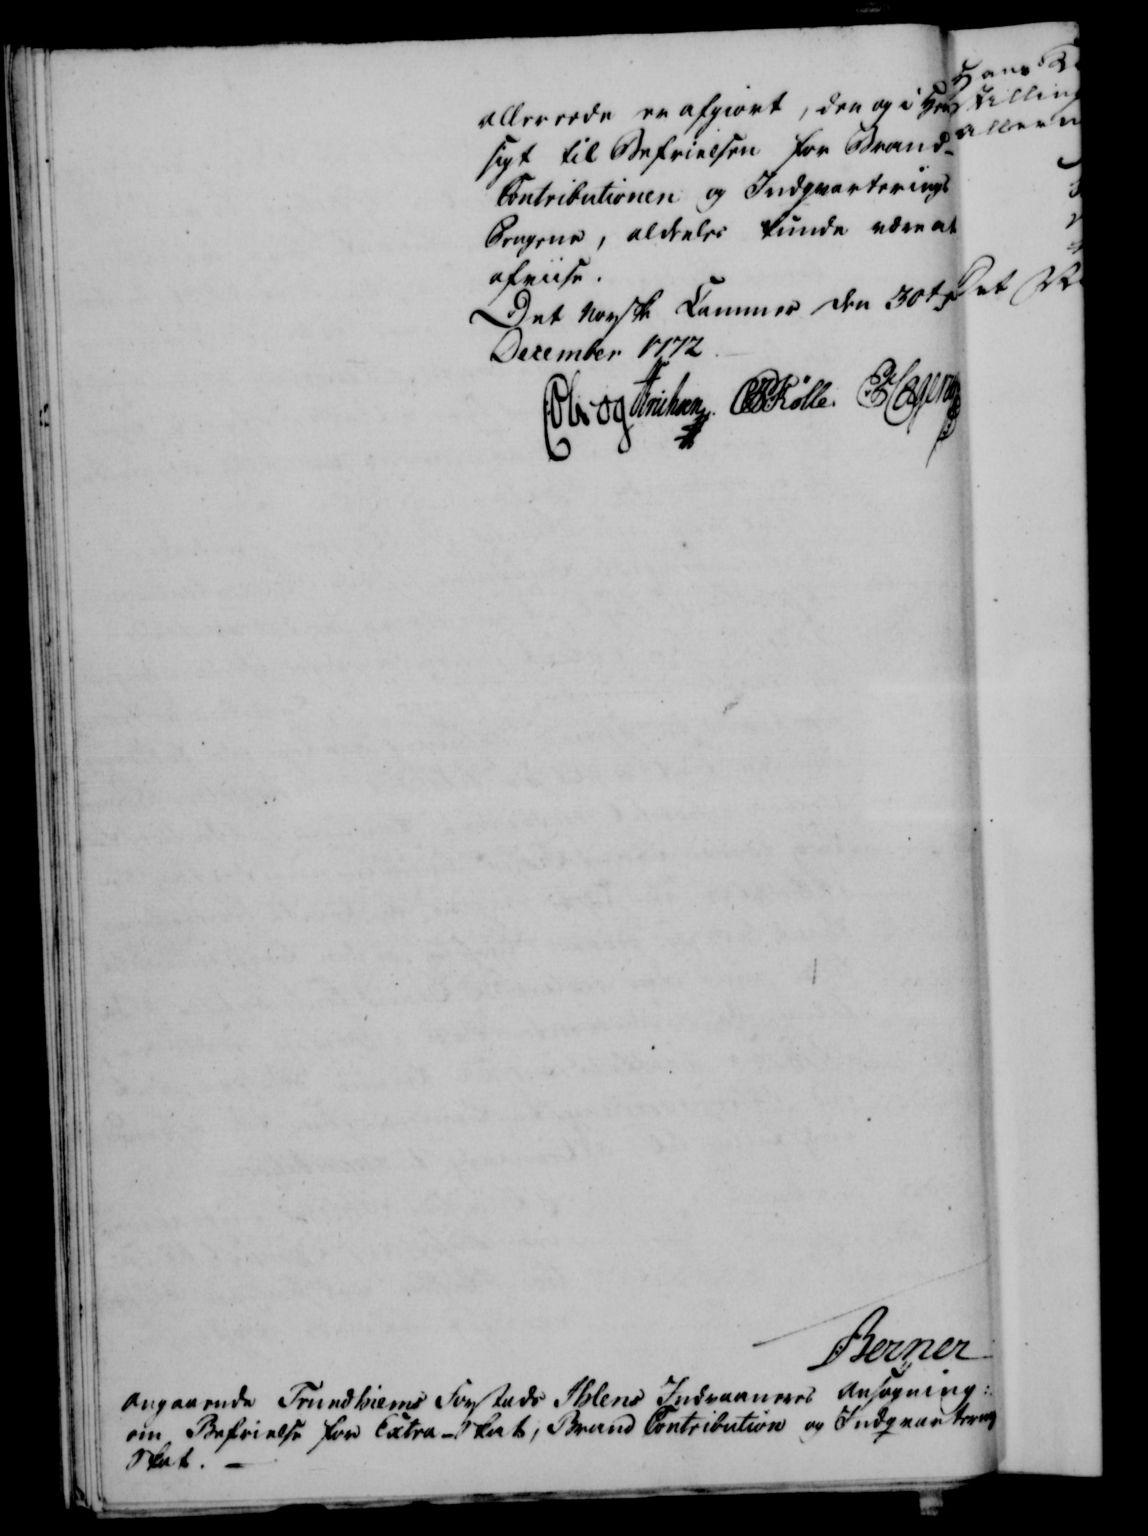 allerede er afgiort, den og i Hen
sigt til Befrielsen for Brand-
Contributionen og Indqvarterings
Pengene, aldeles kunde være at
afviise.
Det Norske Cammer den 30te
December 1772.
CBKølle.
Berner
angaaende Trundhiems Forstads Ihlens Indvaaneres Ansøgning:
om Befrielse for Extra-Skat, Brand Contribution og Indqvarterings
Skat. —
Hans
alleru
Det